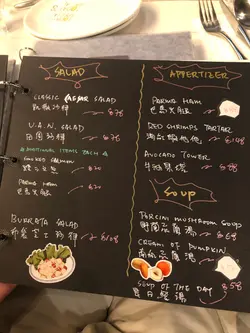 SALAD
CLASSIC CAESAR SALAD
$78
V.A.N. SALAD
田園沙律 $78
ADDITIONAL ITEMS EACH
SMOKED SALMON
煙三文魚 $20
PARMA HAM
巴馬火腿 $20
BURRATA SALAD
$108
APPERTIZER
PARMA HAM
巴馬火腿
RED SHRIMPS TARTAR
$108
AVOCADO TOWER
牛油果塔 $98
SOUP
PORCINI MUSHROOM SOUP
野菌忌廉湯
CREAM OF PUMPKIN
南瓜忌廉湯
SOUP OF THE DAY
是日餐湯 $58